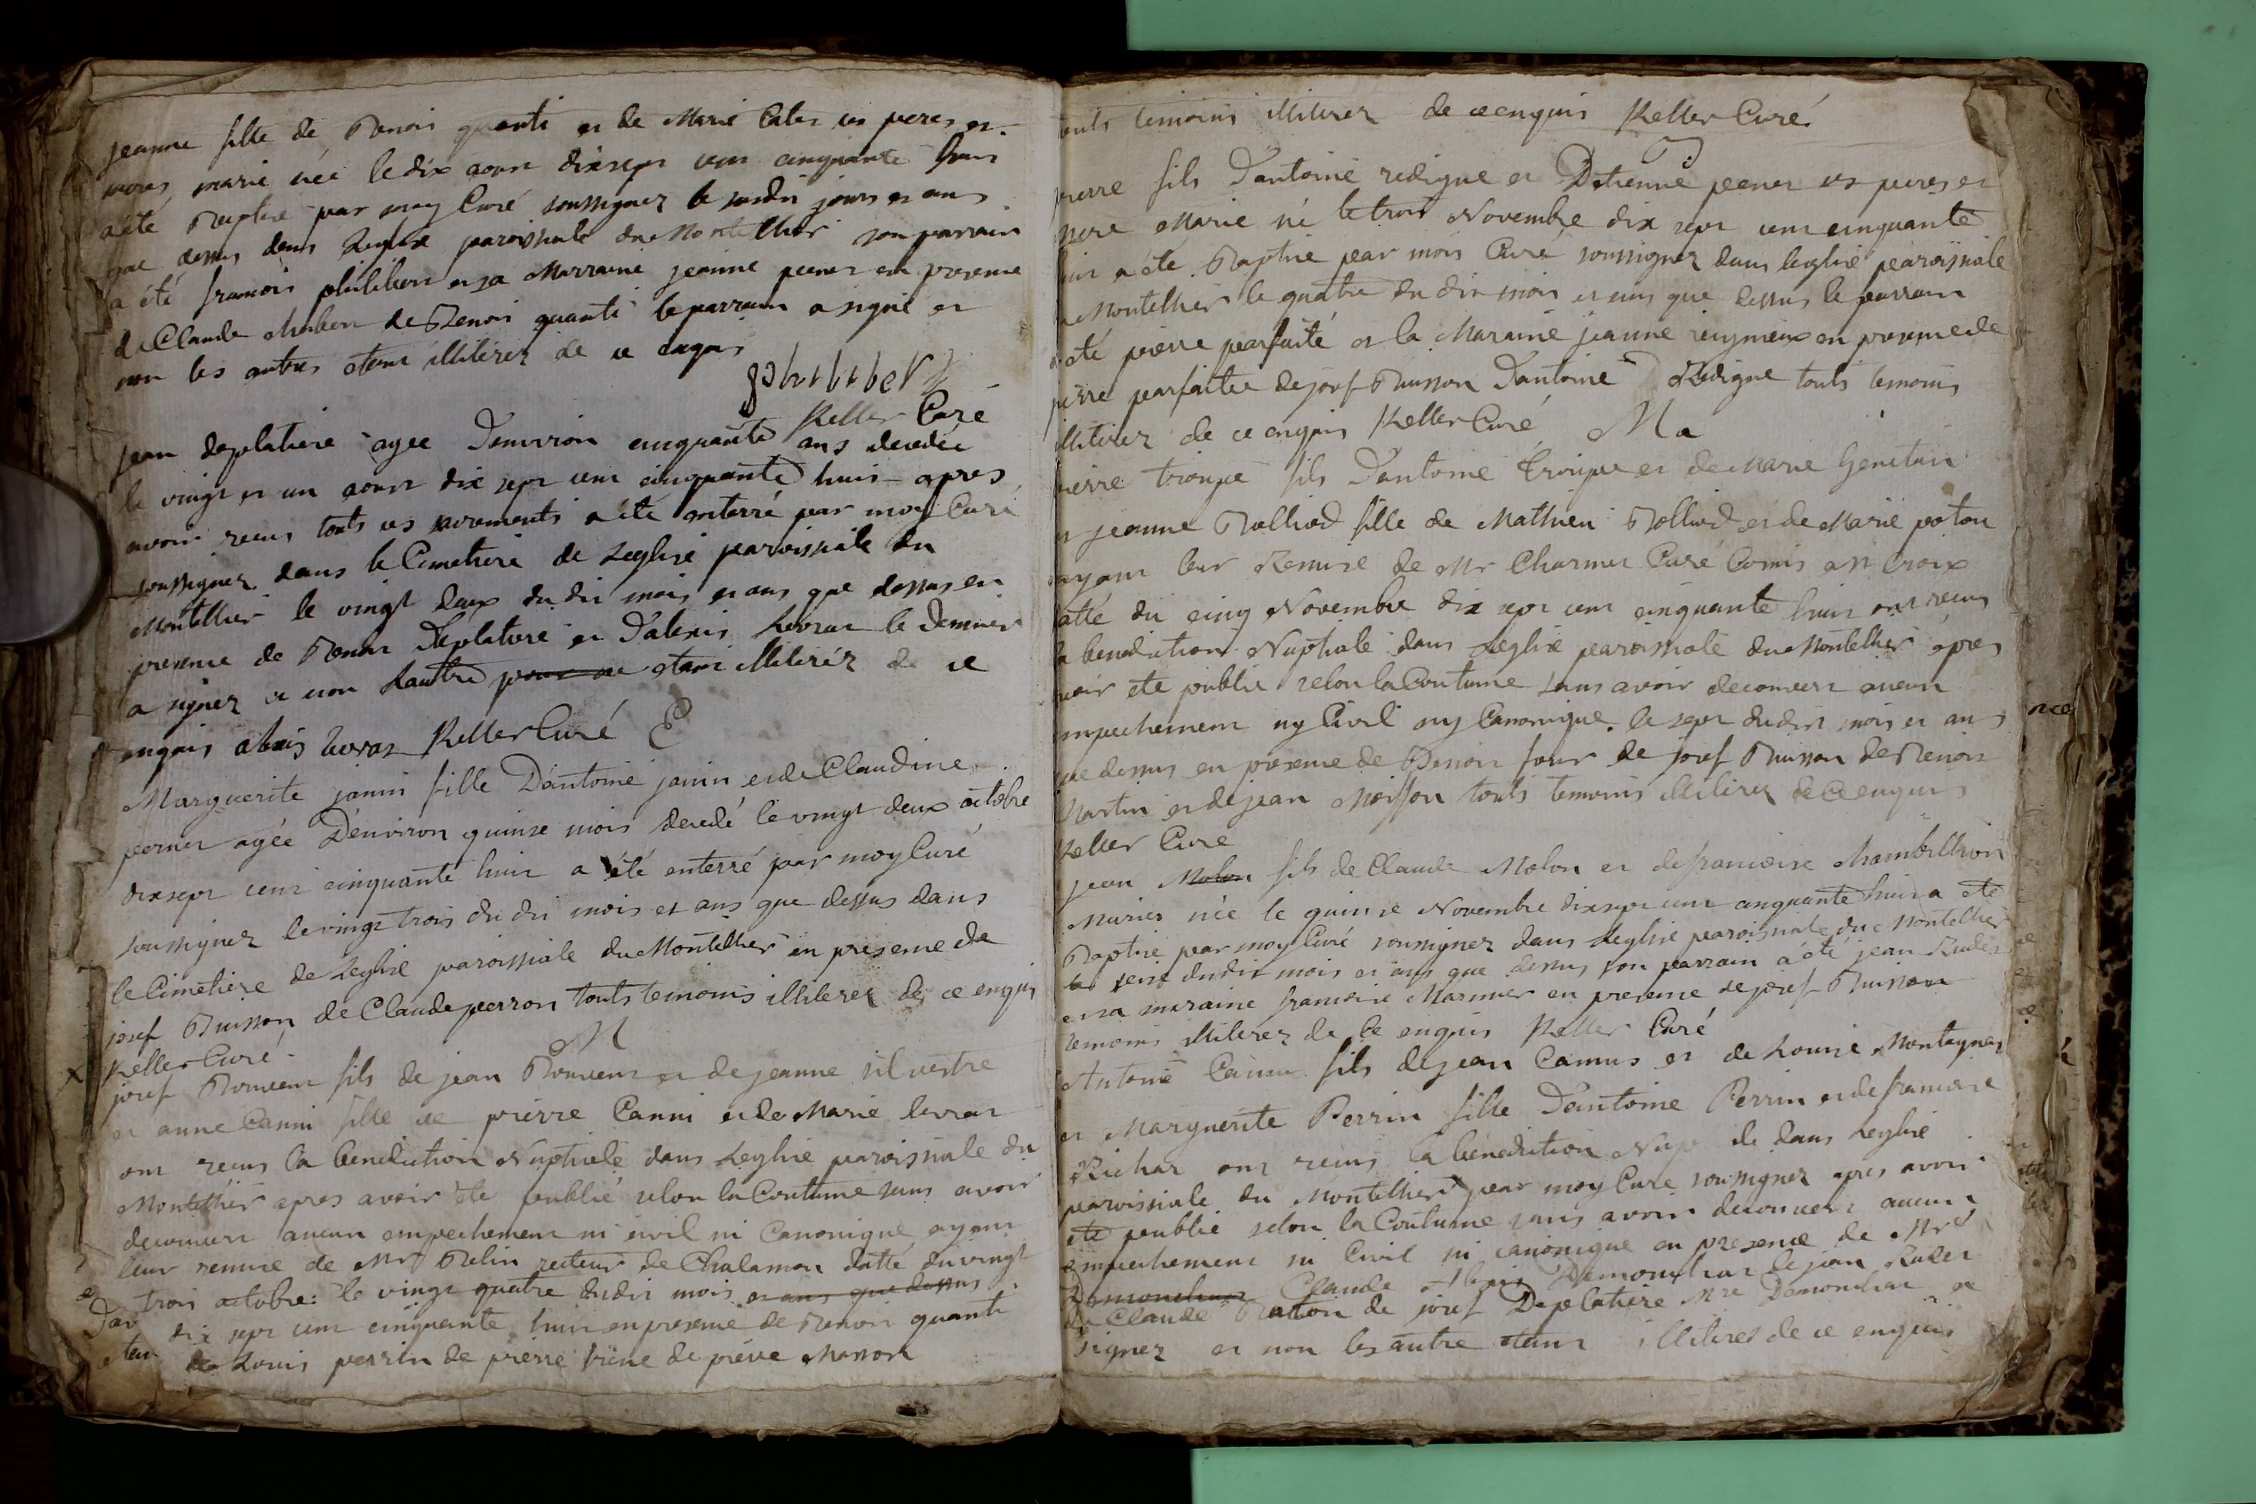 jeanne fille de Benoi quanti et de Marie Cates ses peres et
meres marie née le dix aoust dixsept cent cinquante huit
a été Baptisé par moy Curé soussignez le susdit jours et ans
que dessus dans leglise paroissiale du Montellier son parrain
a été francois philibert et sa Marraine jeanne perner en presence
de Claude de Benoi quanti le parrain a signé et
non les autres etant illitirez de ce enquis
philibert
Keller Curé
jean deplatiere agee Denviron cinquante ans decedée
le vingt et un aoust dix sept cent cinquante huit apres
avoir recus touts ses sacrements a été enterré par moy Curé
soussignez dans le Cimetiere de Leglise paroissiale du
Montellier le vingt deux du dit mois et ans que dessus en
presence de Benoi Deplatiere et Dalexis Levrat le dernier
a signez et non Lautre pour ne etant illitiréz de ce
enquis alexis levrat Keller Curé
Marguerite janin fille Dantoine janin et de Claudine
perner agée Denviron quinse mois decedé le vingt deux octobre
dixsept cent cinquante huit a été enterré par moy Curé
soussignez le vingt trois du dit mois et ans que dessus dans
le Cimetiere de Leglise paroissiale du Montellier en presence de
josef Buisson de Claude perron touts temoins illiterez de ce enquis
Keller Curé
M
josef Bouvent fils de jean Bouvent et de jeanne silvestre
et anne Canni fille de pierre Canni et de Marie levrat
ont recus la benediction Nuptiale dans Leglise paroissiale du
Montellier apres avoir été publié selon la Coutume sans avoir
decouvert aucun empechement ni civil ni Canonique ayant
leur remise de Mr Belin recteur de Chalamon datté du vingt
trois octobre le vingt quatre dudit mois et ans que dessus
dix sept cent cinquante huit en presence de Benoi quanti
de Louis perrin de pierre de pierre Masson
touts temoins illitirez de ce enquis Keller Curé
pierre fils Dantoine redigue et Detienne perner ses peres et
mere Marie né le trois Novembre dix sept cent cinquante
huit a été Baptisé par mois Curé soussignez dans leglise paroissiale
du Montellier le quatre du dit mois et ans que dessus le parrain
a été pierre parfaité et la Maraine jeanne en presence de
pierre parfaitte de josef Buisson Dantoine Redigue touts temoins
illitirez de ce enquis Keller Curé M a
pierre troupe fils Dantoine troupe et de Marie Genetin
et jeanne Rolliod fille de Mathieu Rolliod et de Marie poton
ayant leur Remise de Mr Charmer Curé Comis a St Croix
datté du cinq Novembre dix sept cent cinquante huit ont recus
la benediction Nuptiale dans Leglise paroissiale du Montellier apres
avoir été publié selon la Coutume sans avoir decouvert aucun
empechement ny Civil ny Canonique le sept dudit mois et ans
que dessus en presence de Benoi four de josef Buisson de Benoi
Martin et de jean Moisson touts temoins illitirez de ce enquis
Keller Curé
jean Molon fils de Claude Molon et de francoise
Mariez née le quinse Novembre dixsept cent cinquante huit a été
Baptisé par moy Curé soussignez dans Leglise paroissiale du Montellier
le seise dudit mois et ans que dessus son parrain a été jean Rudet
et sa maraine francoise Marmier en presence de josef Buisson
temoins illiterez de ce enquis Keller Curé
Antoine Camus fils de jean Camus et de Louise Montagnes
et Marguerite Perrin fille Dantoine Perrin et de francoise
Richar ont recus la benediction dans Leglise
paroissiale du Montellier par moy Curé soussignez apres avoir
été publié selon la Coutume sans avoir decouvert aucun
empechement ni Civil ni canonique en presence de Mre
Demonchar Claude Demonchar de jean Rudet
de Claude de josef Deplatiere Mre Demonchar a
signez et non les autre etant illitirez de ce enquis